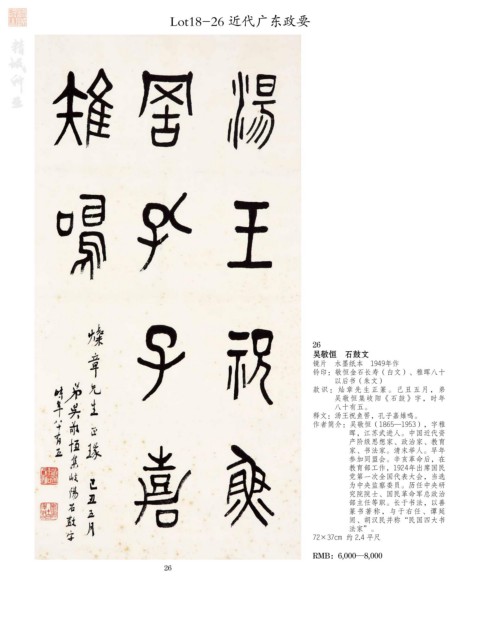 Lot18-26 近代广东政要
湯王祝魚
罟孔子嘉
雉鳴
燦章先生正篆 己丑五月
弟吴敬恒集岐陽石鼓字
時年八十有五
26
26
吴敬恒 石鼓文
镜片 水墨纸本 1949年作
钤印：敬恒金石长寿（白文）、稚晖八十
以后书（朱文）
款识：灿章先生正篆。己丑五月，弟
吴敬恒集岐阳《石鼓》字，时年
八十有五。
释文：汤王祝鱼罟，孔子嘉雉鸣。
作者简介：吴敬恒（1865—1953），字稚
晖，江苏武进人。中国近代资
产阶级思想家、政治家、教育
家、书法家。清末举人。早年
参加同盟会。辛亥革命后，在
教育部工作，1924年出席国民
党第一次全国代表大会，当选
为中央监察委员。历任中央研
究院院士、国民革命军总政治
部主任等职。长于书法，以善
篆书著称，与于右任、谭延
闿、胡汉民并称“民国四大书
法家”。
72×37cm 约 2.4 平尺
RMB: 6,000—8,000